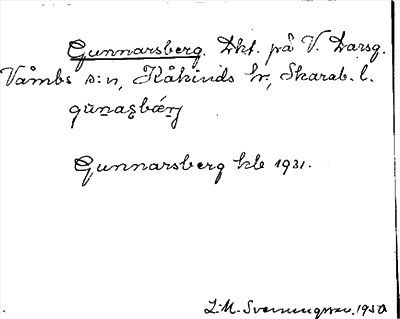 Gunnarsberg. Dkt. på V. Darsg.
Våmbs s:n, Kåkinds hr, Skarab. l.
gu̅nas̱bǽrj
Gunnarsberg kbl 1931.
L.-M. Svenungsson. 1950